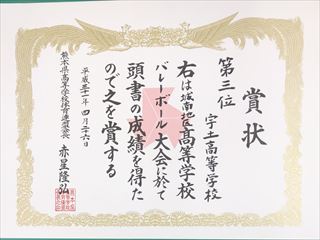 賞状
第三位
宇土高等学校
右は城南地区高等学校
バレーボール大会に於て
頭書の成績を得た
ので之を賞する
平成三十一年四月二十六日
熊本県高等学校体育連盟会長
赤星隆弘